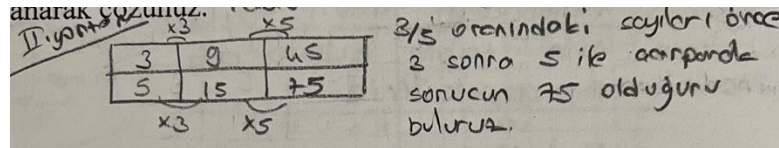 anarak çözünüz.
II. yöntem
x3 x5
3 9 45
5 15 75
x3 x5
3/5 oranındaki sayıları önce
3 sonra 5 ile çarparda
sonucun 75 olduğunu
buluruz.